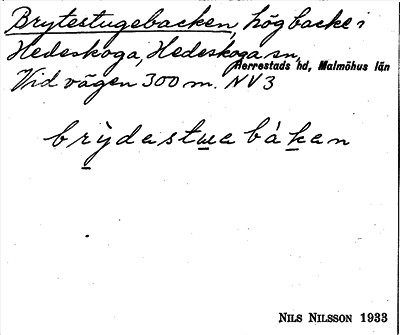 Brytestugebacken, hög backe i
Hedeskoga, Hedeskoga sn,
Herrestads hd, Malmöhus län
Vid vägen 300 m. NV3
brỳdastuebàkan
NILS NILSSON 1933